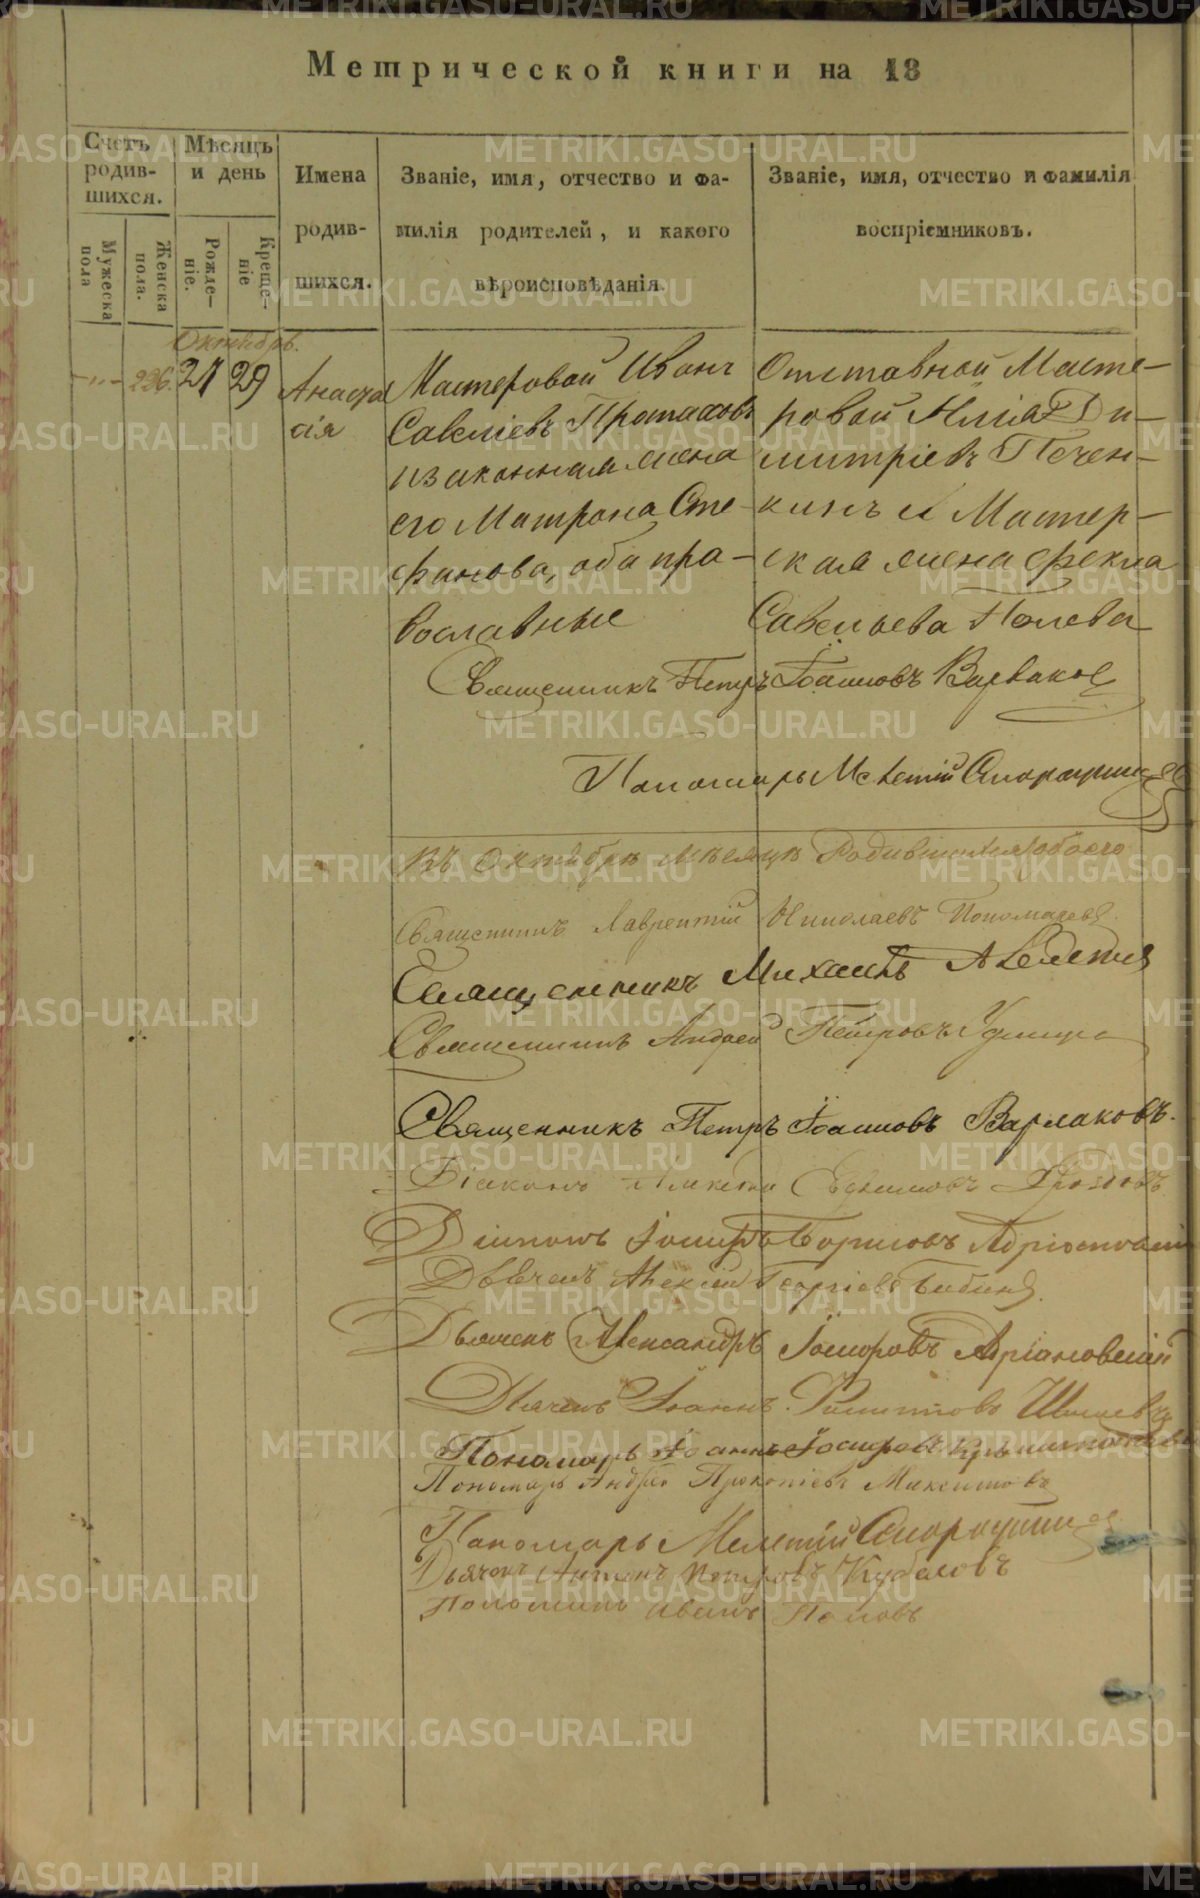 Метрической книги на 18
Счетъ родив-шихся.
Мѣсяцъ и день
Имена родив-шихся.
Званіе, имя, отчество и фа-
милія родителей, и какого
вѣроисповѣданія.
Званіе, имя, отчество и фамилія
воспріемниковъ.
Мужеска пола
Женска пола.
Рожде-ніе.
Креще-ніе
Октябрь.
-"- 236. 27 29
Анаста
сія
Мастеровой Иванъ
Савеліевъ Протасовъ
и законная жена
его Матрона Сте-
фанова, оба пра-
вославные
Отставной Масте-
ровой Илія Ди-
митріевъ Печен-
кинъ и Мастер-
ская жена Фекла
Савельева Полева
Священникъ Петръ Іоанновъ Варлаков
Пономарь Мелетій
Въ Октябрѣ мѣсяцѣ Родившихся обоего
Священникъ Лаврентій Николаевъ Пономарев
Священникъ Михаилъ
Священникъ Андрей Петровъ
Священникъ Петръ Іоанновъ Варлаковъ.
Діаконъ
Діаконъ Іосифъ Борисовъ
Дьячекъ Алексій Георгіевъ Бабин
Дьячекъ Александръ Іосифовъ
Дьячекъ Іоаннъ Филиповъ
Пономарь Іоаннъ
Пономарь Андрей Прокопіевъ Максимовъ
Пономарь Мелетій
Дьячекъ Антонъ Петровъ Кубасовъ
Иванъ Поповъ
METRIKI.GASO-URAL.RU